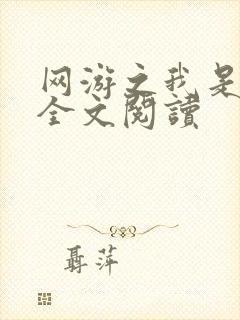 网游之我是
全文閱讀
聶萍